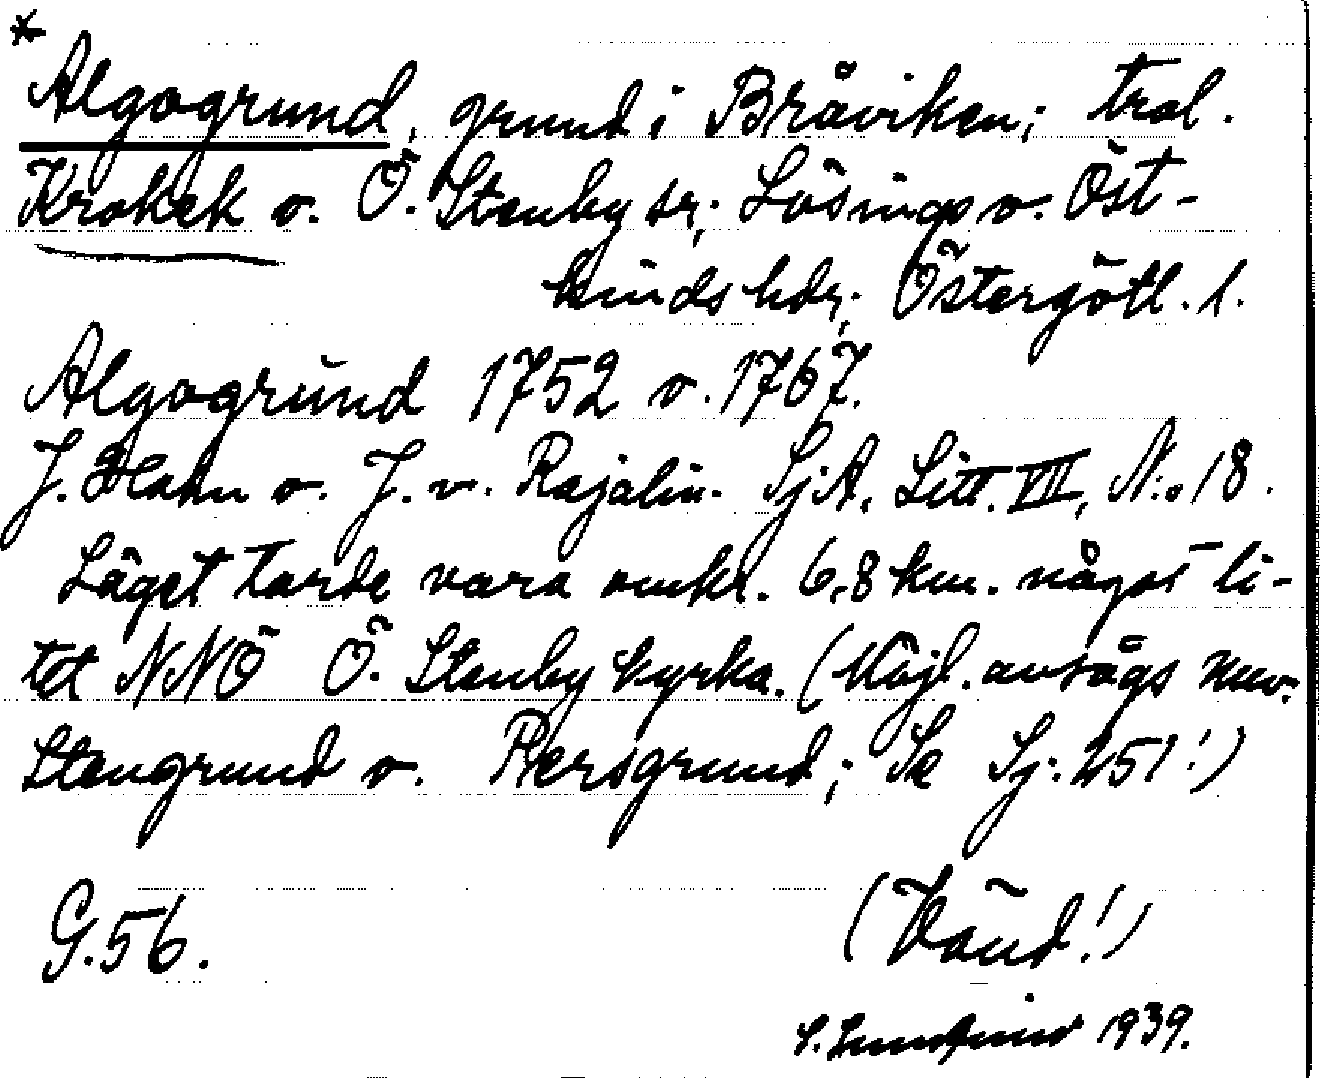 *
Algogrund, grund i Bråviken; trol.
Krokek o. Ö. Stenby sr; Lösings o. Öst-
kinds hdr; Östergötl. l.
Algogrund 1752 o. 1767.
J. Hahn o. J. v. Rajalin. SjA. Litt. VII, N:o 18.
Läget torde vara omkr. 6,8 km. något li-
tet NNÖ Ö. Stenby kyrka. (Möjl. avsågs nuv.
Stengrund o. Persgrund; Se Sj. 251!)
G. 56.
(Vänd!)
S. Lundqvist 1939.